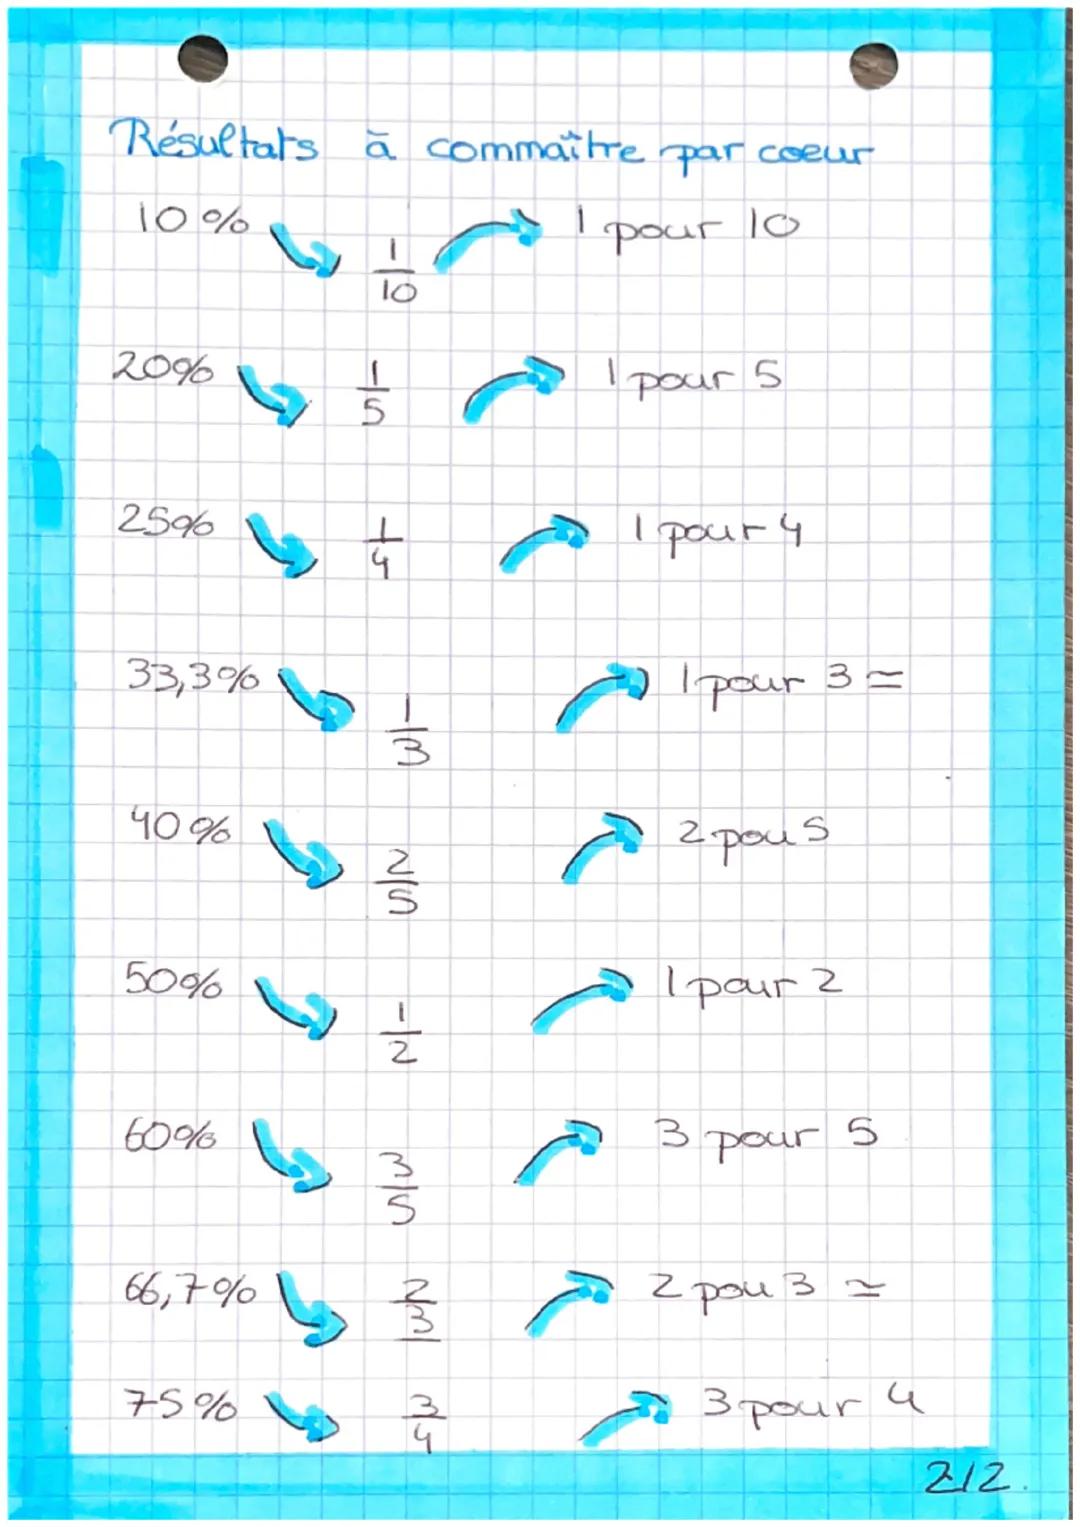 Résultats à commaître par coeur
10% 1/10 1 pour 10
20% 1/5 1 pour 5
25% 1/4 1 pour 4
33,3% 1/3 1 pour 3 ≃
40% 2/5 2 pou 5
50% 1/2 1 pour 2
60% 3/5 3 pour 5
66,7% 2/3 2 pou 3 ≃
75% 3/4 3 pour 4
2/2.